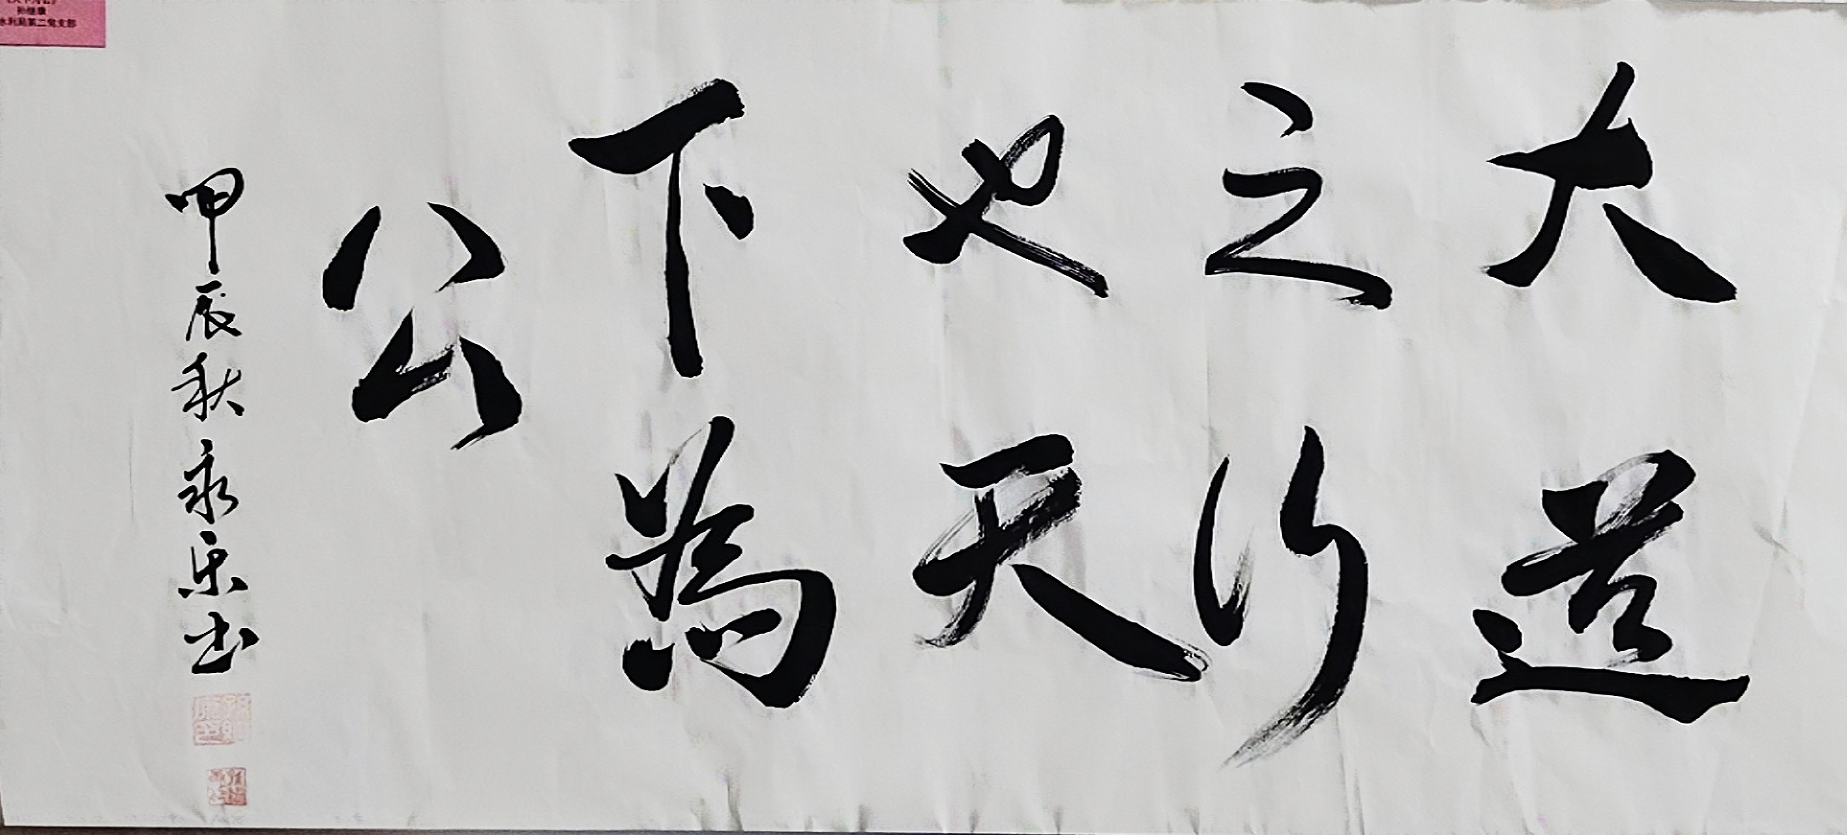 大道
之行
也天
下為
公
甲辰秋永乐书
孙继康
水利局第二党支部